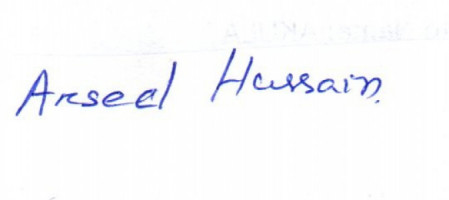 Arseel Hussain